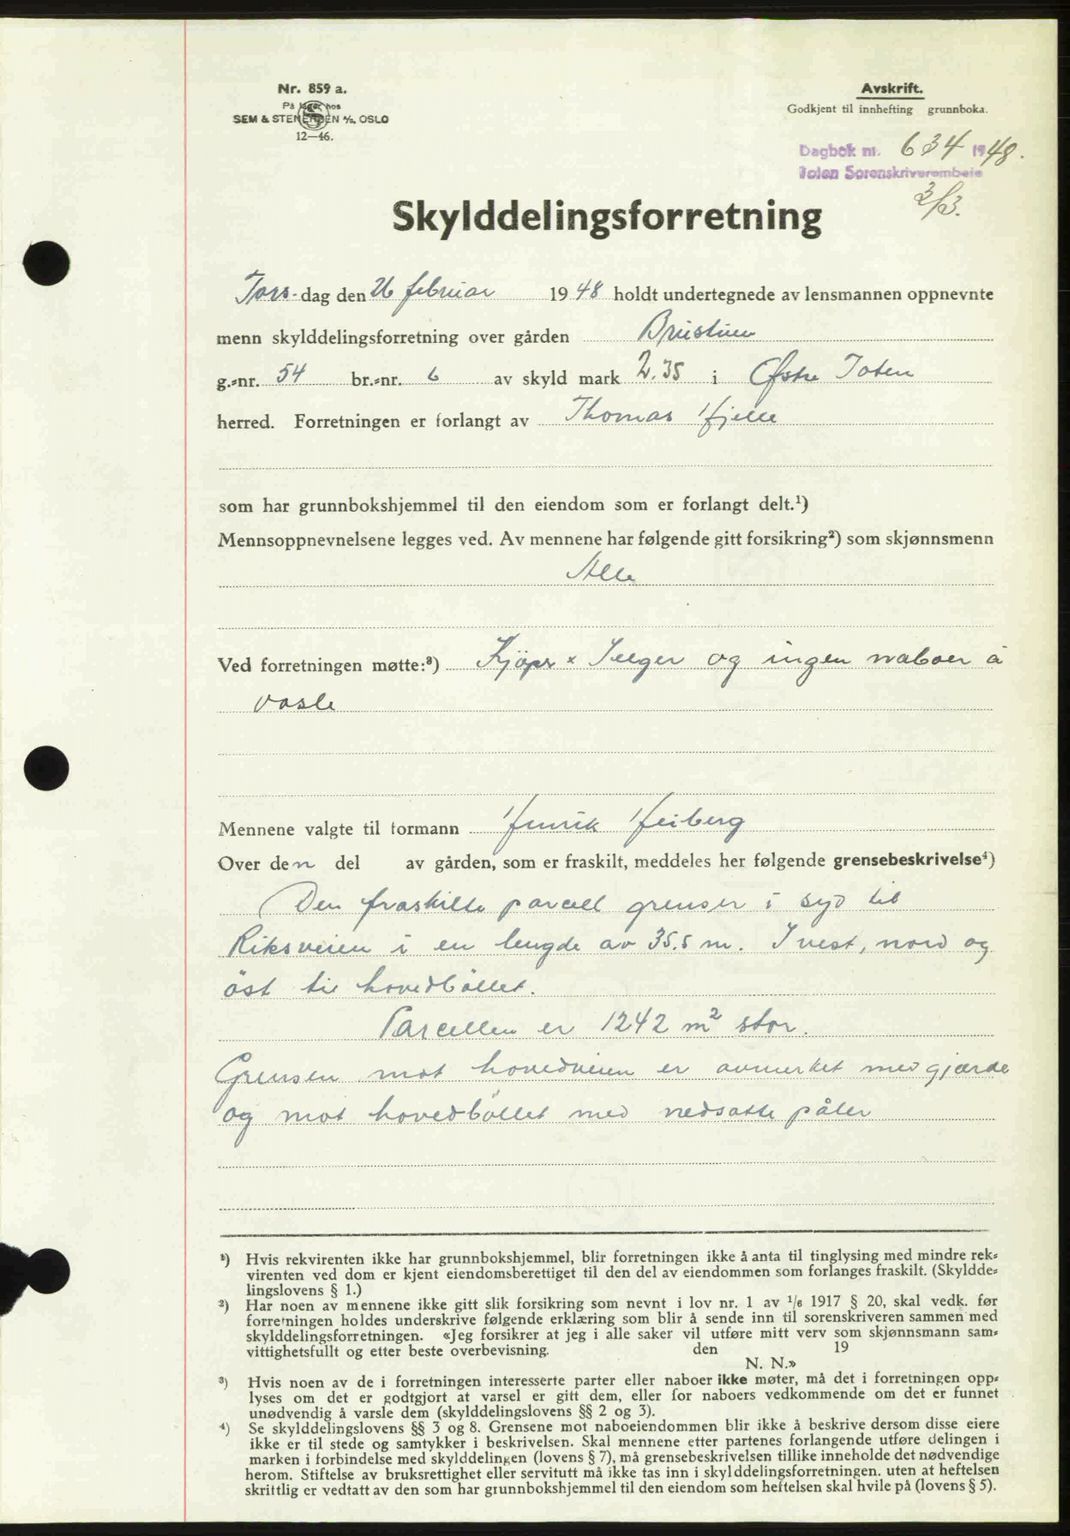 Nr. 859 a.
På lager hos
SEM & STENERSEN A/S, OSLO
12—46.
Avskrift.
Godkjent til innhefting grunnboka.
Dagbok nr. 634 1948.
Toten Sorenskriverembete
3/3.
Skylddelingsforretning
Tors-dag den 26 februar 1948 holdt undertegnede av lensmannen oppnevnte
menn skylddelingsforretning over gården
g.-nr. 54 br.-nr. 6 av skyld mark 2.35 i Østre Toten
herred. Forretningen er forlangt av Thomas Hjelle
som har grunnbokshjemmel til den eiendom som er forlangt delt.¹)
Mennsoppnevnelsene legges ved. Av mennene har følgende gitt forsikring²) som skjønnsmenn
Alle
Ved forretningen møtte:³) Kjöper x Selger og ingen naboer å
vasle
Mennene valgte til formann Henrik Heiberg
Over den del av gården, som er fraskilt, meddeles her følgende grensebeskrivelse⁴)
Den fraskilte parcell grenser i syd til
Riksveien i en lengde av 35.5 m. I vest, nord og
öst til hovedböllet.
Parcellen er 1242 m² stor.
Grensen mot hovedveien er avmerket med gjærde
og mot hovedböllet med nedsatte påler
¹) Hvis rekvirenten ikke har grunnbokshjemmel, blir forretningen ikke å anta til tinglysing med mindre rek-
virenten ved dom er kjent eiendomsberettiget til den del av eiendommen som forlanges fraskilt. (Skyldde-
lingslovens § 1.)
²) Har noen av mennene ikke gitt slik forsikring som nevnt i lov nr. 1 av 1/6 1917 § 20, skal vedk. før
forretningen holdes underskrive følgende erklæring som blir å sende inn til sorenskriveren sammen med
skylddelingsforretningen. «Jeg forsikrer at jeg i alle saker vil utføre mitt verv som skjønnsmann sam-
vittighetsfullt og etter beste overbevisning. den 19
N. N.»
³) Hvis noen av de i forretningen interesserte parter eller naboer ikke møter, må det i forretningen opp-
lyses om det er godtgjort at varsel er gitt dem, eller for naboers vedkommende om det er funnet
unødvendig å varsle dem (skylddelingslovens §§ 2 og 3).
⁴) Se skylddelingslovens §§ 3 og 8. Grensene mot naboeiendommen blir ikke å beskrive dersom disse eiere
ikke er til stede og samtykker i beskrivelsen. Skal mennene etter partenes forlangende utføre delingen i
marken i forbindelse med skylddelingen (lovens § 7), må grensebeskrivelsen tillike inneholde det nødvendige
herom. Stiftelse av bruksrettighet eller servitutt må ikke tas inn i skylddelingsforretningen, uten at heftelsen
skriftlig er vedtatt av den som har grunnbokshjemmel til den eiendom som heftelsen skal hvile på (lovens § 5).